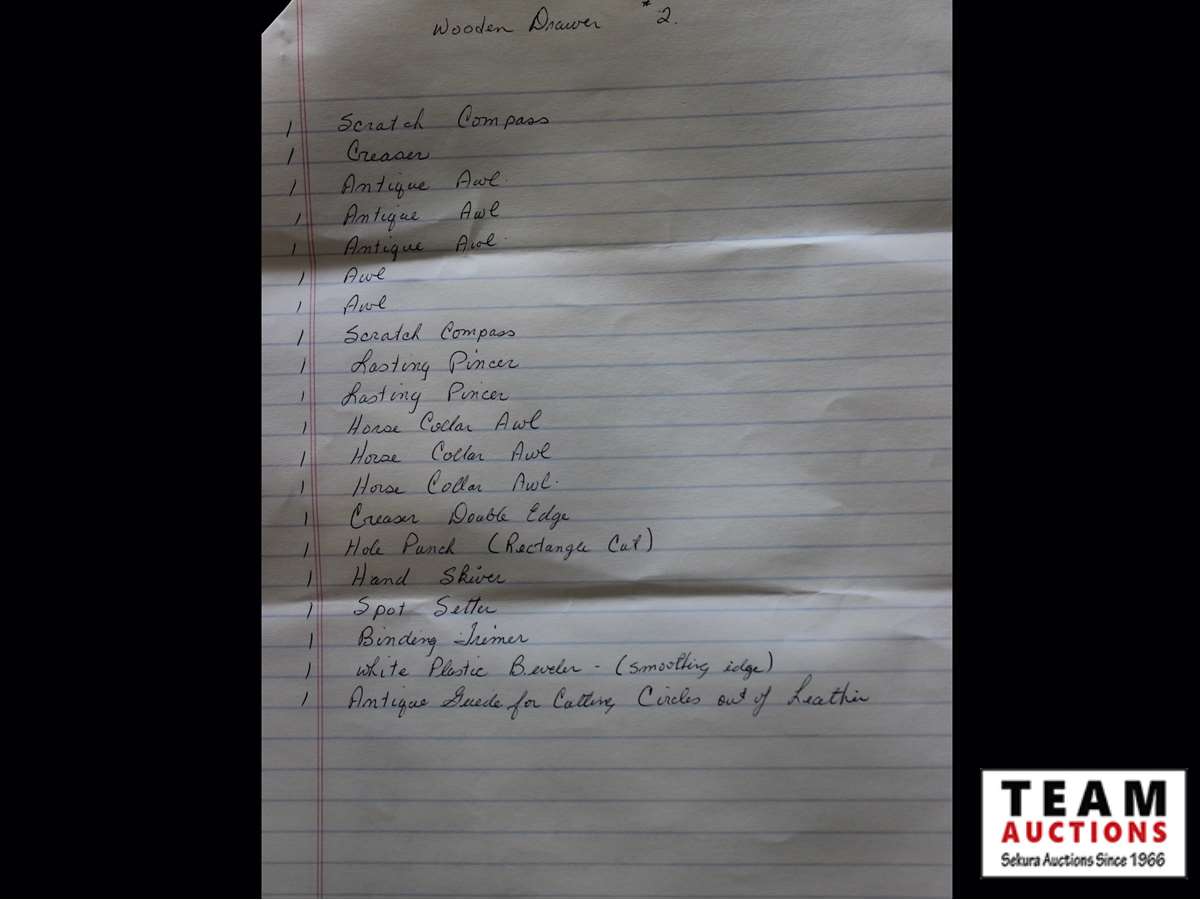 Wooden Drawer #2.
1 Scratch Compass
1 Creaser
1 Antique Awl.
1 Antique Awl
1 Antique Awl.
1 Awl
1 Awl
1 Scratch Compass
1 Lasting Pincer
1 Lasting Pincer
1 Horse Collar Awl
1 Horse Collar Awl
1 Horse Collar Awl.
1 Creaser Double Edge
1 Hole Punch (Rectangle Cut)
1 Hand Skiver
1 Spot Setter
1 Binding Trimer
1 White Plastic Beveler - (smoothing edge)
1 Antique Guide for Cutting Circles out of Leather
TEAM
AUCTIONS
Sekura Auctions Since 1966